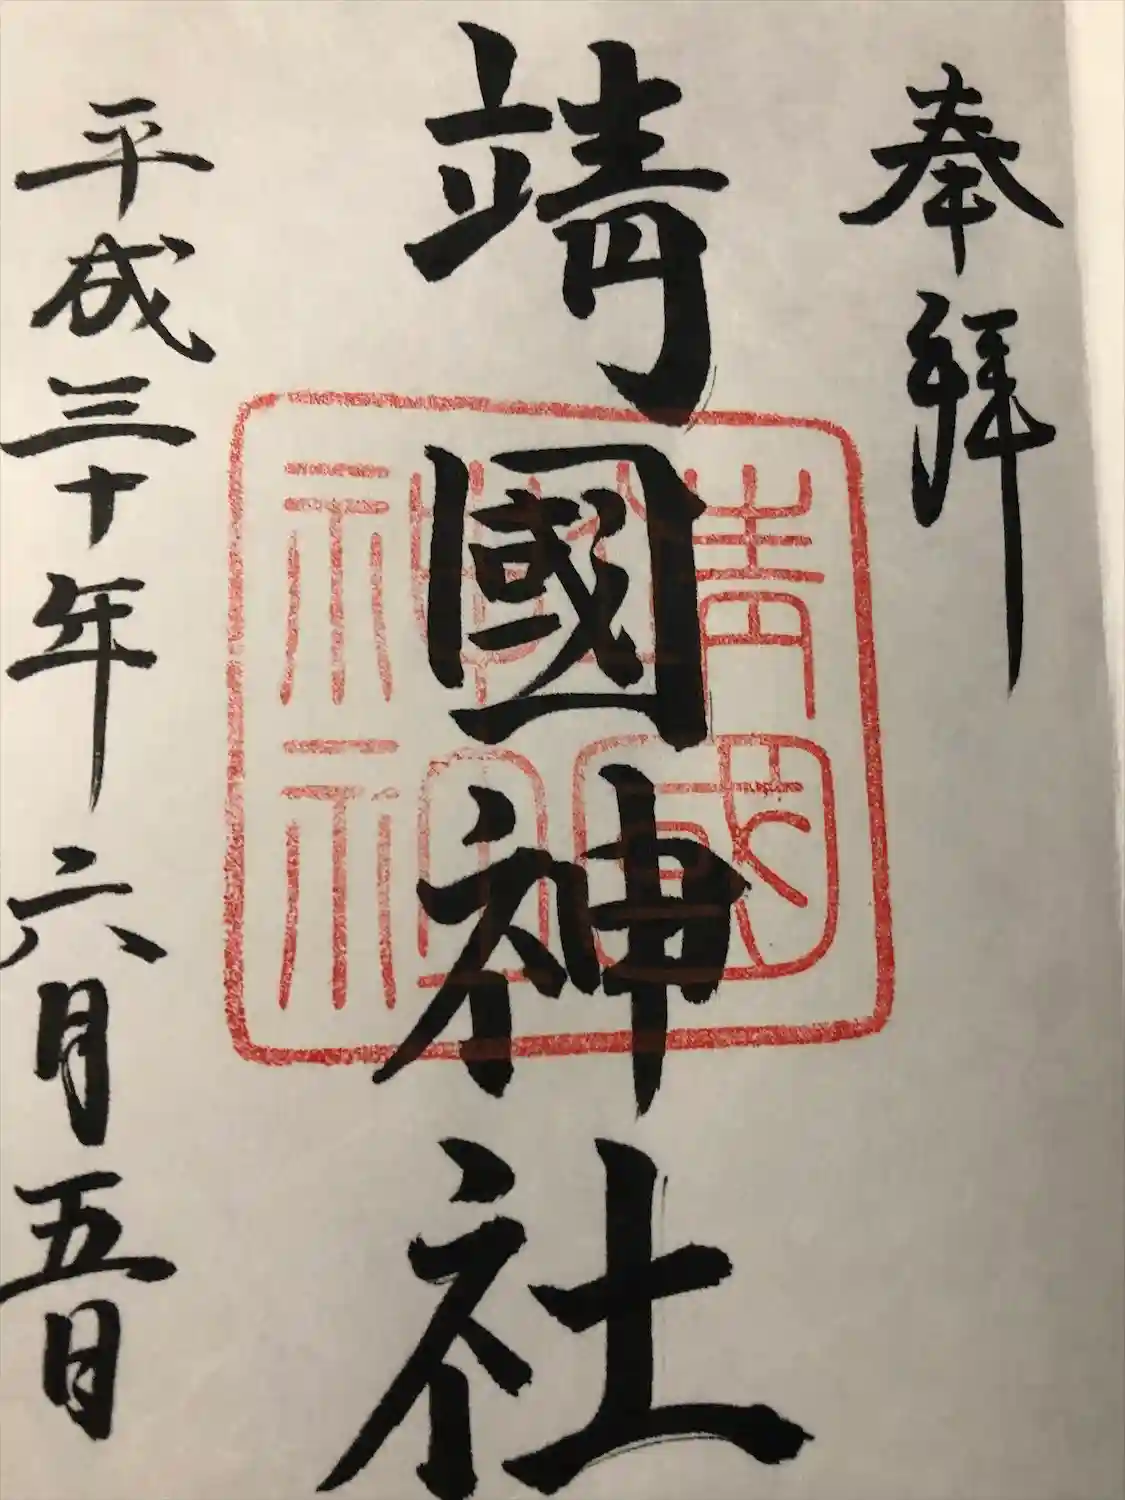 奉拝
靖國神社
平成三十年六月五日
靖國神社